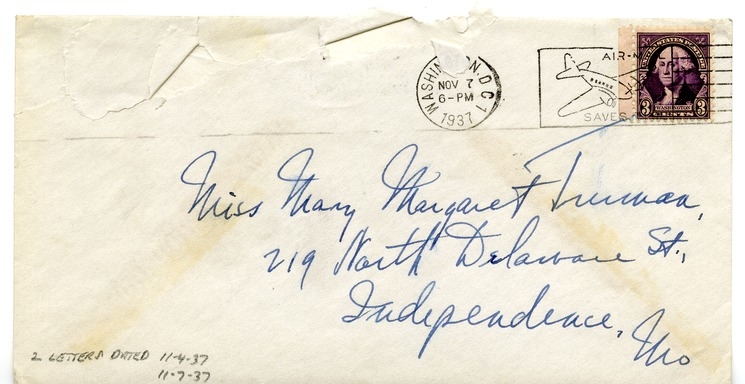 WASHINGTON, D C 1
NOV 7
6-PM
1937
AIR-M
SAVES
UNITED STATES POSTAGE
3 WASHINGTON 3
CENTS
Miss Mary Margaret Truman,
219 North Delaware St.,
Independence,
Mo
2 LETTERS DATED 11-4-37
11-7-37